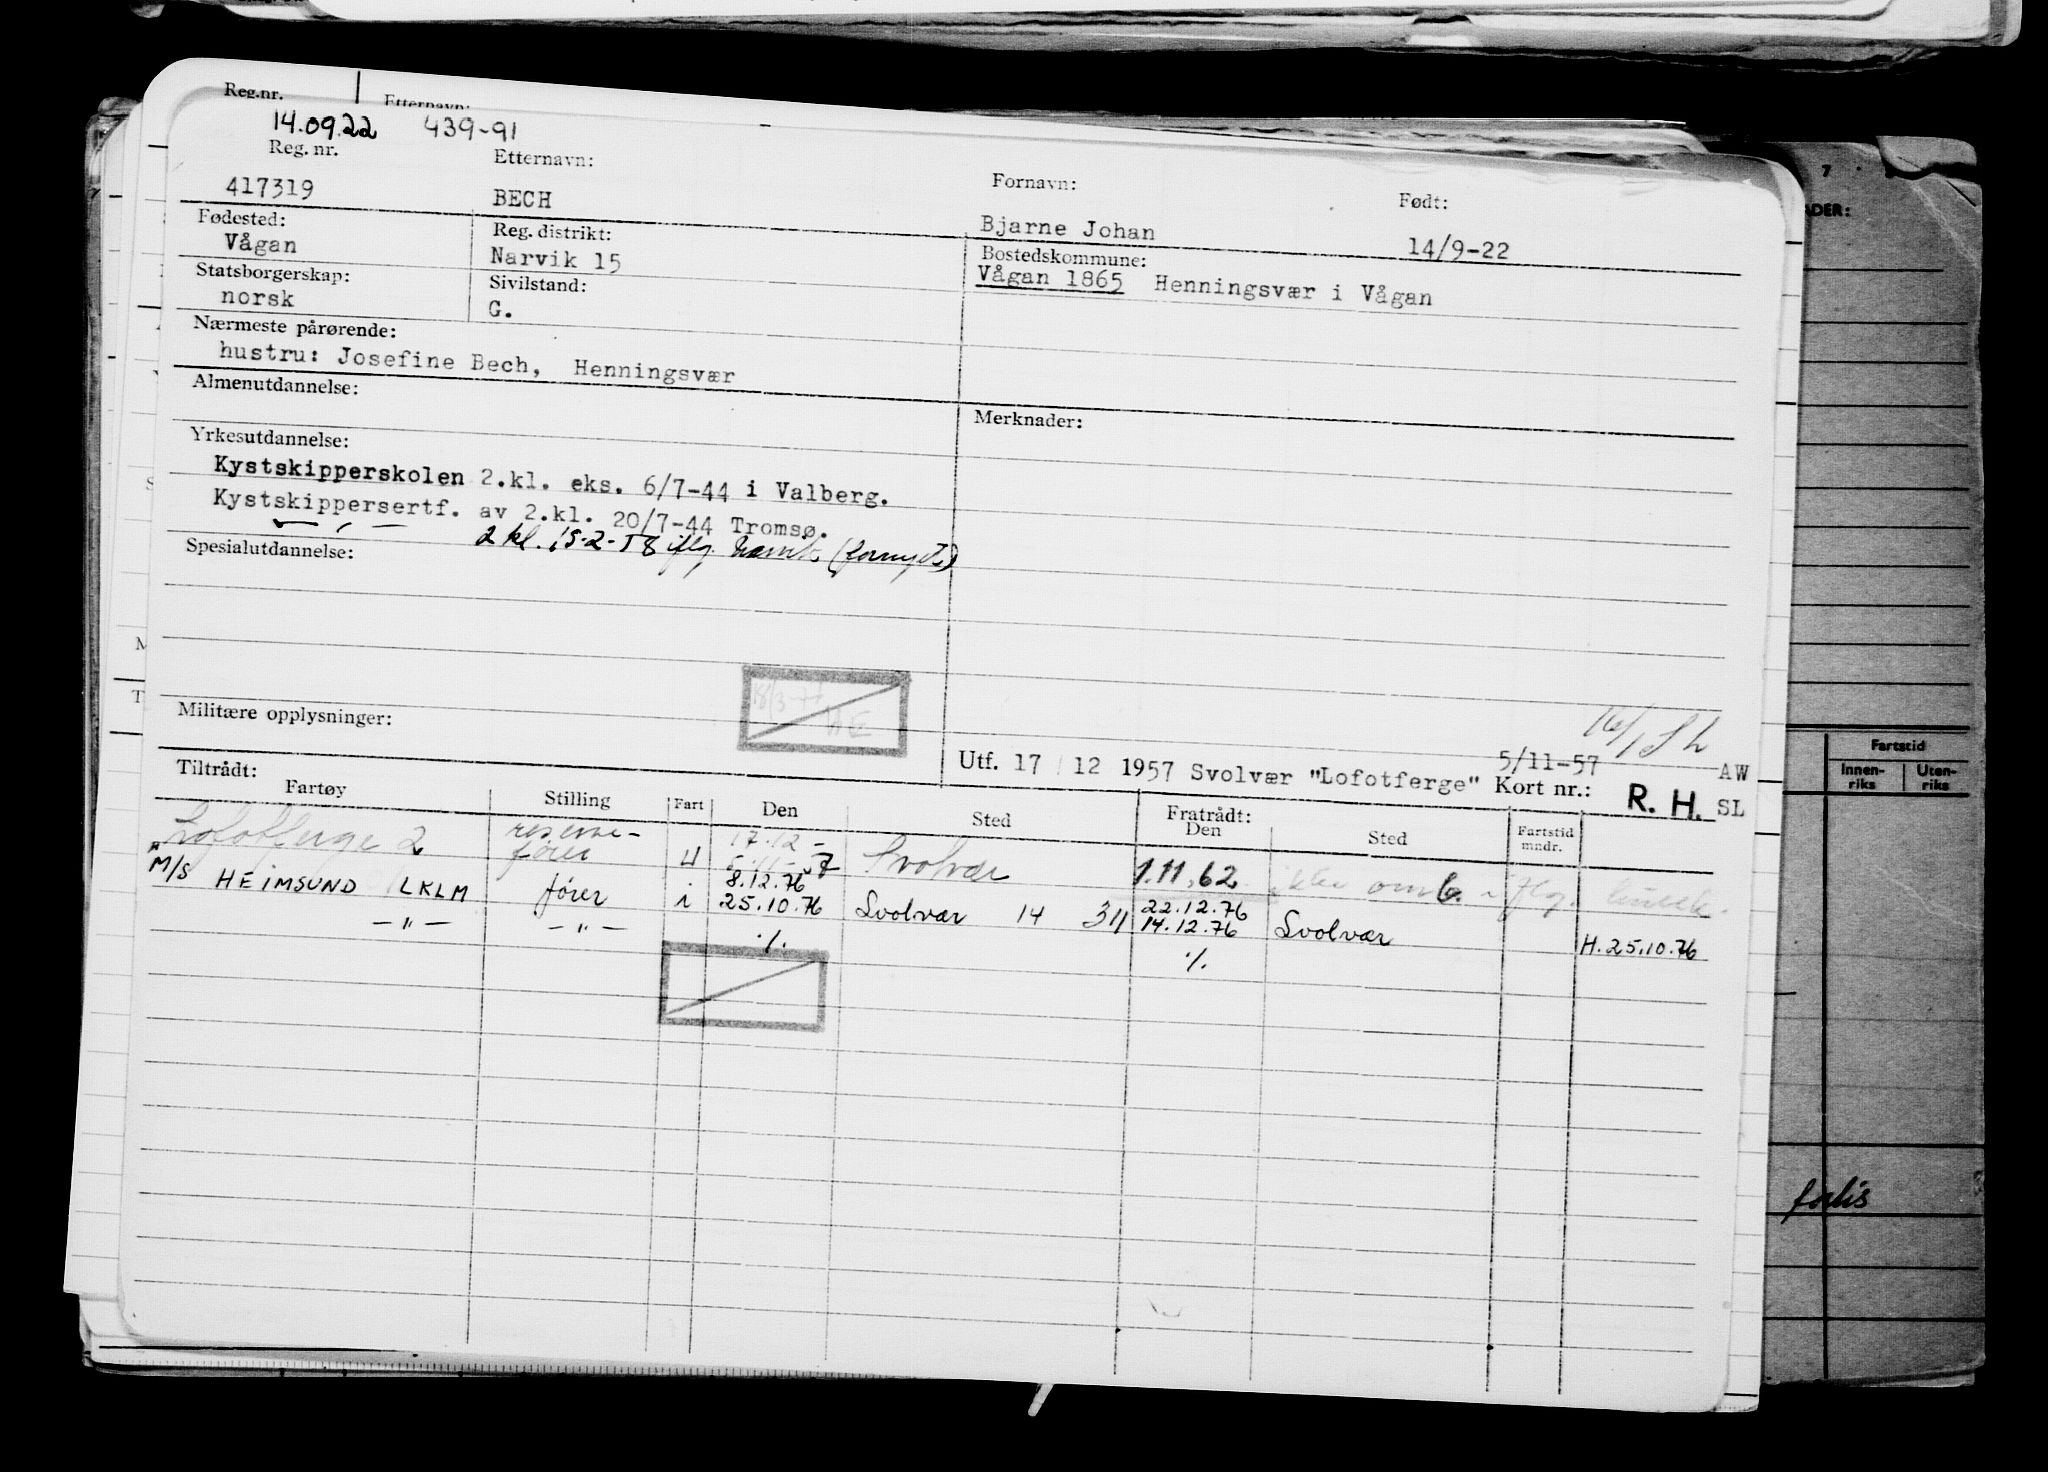 Reg.nr. Etternavn:
14.09.22 439-91
Reg. nr. Etternavn: Fornavn: Født:
417319 BECH Bjarne Johan 14/9-22
Fødested: Reg. distrikt: Bostedskommune:
Vågan Narvik 15 Vågan 1865 Henningsvær i Vågan
Statsborgerskap: Sivilstand:
norsk G.
Nærmeste pårørende:
hustru: Josefine Bech, Henningsvær
Almenutdannelse: Merknader:
Yrkesutdannelse:
Kystskipperskolen 2.kl. eks. 6/7-44 i Valberg.
Kystskippersertf. av 2.kl. 20/7-44 Tromsø.
— " — 2 kl. 15-2-58 iflg. Narvik (fornyet)
Spesialutdannelse:
18/3-77 HE
Militære opplysninger:
Utf. 17/12 1957 Svolvær "Lofotferge" 5/11-57 Kort nr.: R. H. AW
SL
Tiltrådt: Fratrådt:
Fartøy Stilling Fart Den Sted Den Sted Fartstid mndr.
Lofotferge 2 reserve- 17.12-
fører U 5.11-57 Svolvær 1.11.62 ikke omb. iflg.
M/S 8.12.76 22.12.76
HEIMSUND LKLM fører i 25.10.76 Svolvær 14 34 14.12.76 Svolvær H.25.10.76
— " — — " — ./. ./.
7
ADER:
Fartstid
Innen-riks Uten-riks